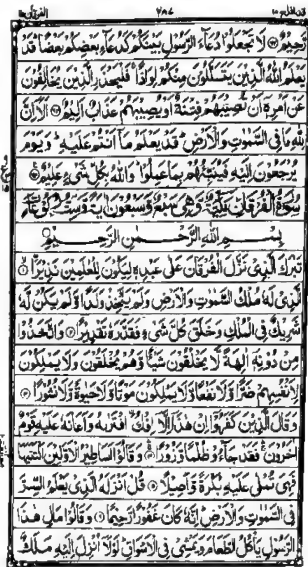 رحيم لا تجعلوا دعاء الرسول بينكم كدعاء بعضكم بعضا قد
يعلم الله الذين يتسللون منكم لواذا فليحذر الذين يخالفون
عن امره ان تصيبهم فتنة او يصيبهم عذاب اليم الا ان
لله ما في السموت والارض قد يعلم ما انتم عليه ويوم
يرجعون اليه فينبئهم بما عملوا والله بكل شيء عليم
سورة الفرقان مكية وهي سبع وسبعون اية وست
بسم الله الرحمن الرحيم
تبرك الذي نزل الفرقان على عبده ليكون للعلمين نذيرا
الذي له ملك السموت والارض ولم يتخذ ولدا ولم يكن له
شريك في الملك وخلق كل شيء فقدره تقديرا واتخذوا
من دونه الهة لا يخلقون شيئا وهم يخلقون ولا يملكون
لانفسهم ضرا ولا نفعا ولا يملكون موتا ولا حيوة ولا نشورا
وقال الذين كفروا ان هذا الا افك افتربه واعانه عليه قوم
اخرون فقد جاءو ظلما وزورا وقالوا اساطير الاولين اكتتبها
فهي تملى عليه بكرة واصيلا قل انزله الذي يعلم السر
في السموت والارض انه كان غفورا رحيما وقالوا مال هذا
الرسول ياكل الطعام ويمشي في الاسواق لولا انزل اليه ملك